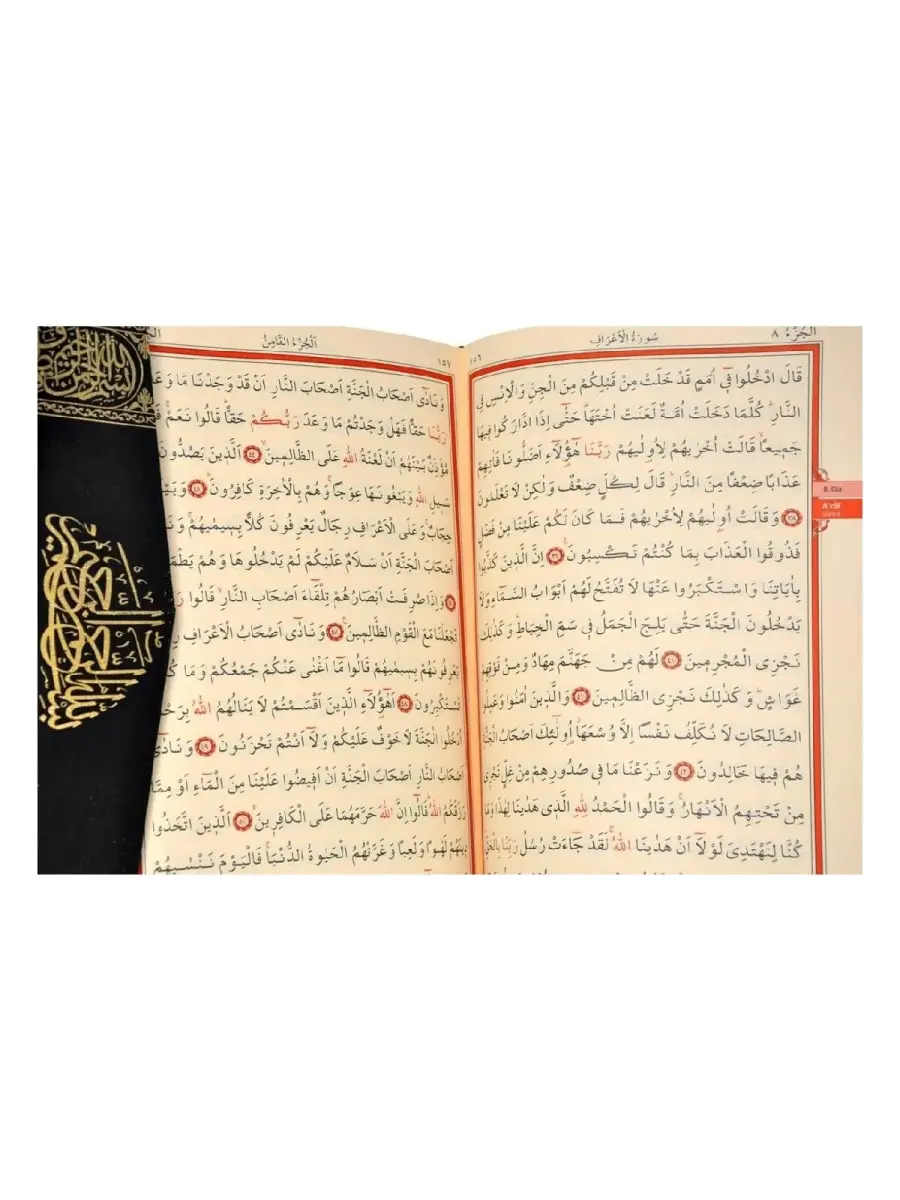 الجزء ٨
سورة الأعراف
١٥٦
قَالَ ادْخُلُوا فٓي اُمَمٍ قَدْ خَلَتْ مِنْ قَبْلِكُمْ مِنَ الْجِنِّ وَالْاِنْسِ فِي
النَّارِۜ كُلَّمَا دَخَلَتْ اُمَّةٌ لَعَنَتْ اُخْتَهَاۜ حَتّٰٓى اِذَا ادَّارَكُوا فٖيهَا
جَمٖيعاًۙ قَالَتْ اُخْرٰيهُمْ لِاُو۫لٰيهُمْ رَبَّنَا هٰٓؤُ۬لَٓاءِ اَضَلُّونَا فَاٰتِهِمْ
عَذَاباً ضِعْفاً مِنَ النَّارِۜ قَالَ لِكُلٍّ ضِعْفٌ وَلٰكِنْ لَا تَعْلَمُونَ
٣٨ وَقَالَتْ اُو۫لٰيهُمْ لِاُخْرٰيهُمْ فَمَا كَانَ لَكُمْ عَلَيْنَا مِنْ فَضْلٍ
فَذُوقُوا الْعَذَابَ بِمَا كُنْتُمْ تَكْسِبُونَ۟ ٣٩ اِنَّ الَّذٖينَ كَذَّبُوا
بِاٰيَاتِنَا وَاسْتَكْبَرُوا عَنْهَا لَا تُفَتَّحُ لَهُمْ اَبْوَابُ السَّمَٓاءِ وَلَا
يَدْخُلُونَ الْجَنَّةَ حَتّٰى يَلِجَ الْجَمَلُ فٖي سَمِّ الْخِيَاطِۜ وَكَذٰلِكَ
نَجْزِي الْمُجْرِمٖينَ ٤٠ لَهُمْ مِنْ جَهَنَّمَ مِهَادٌ وَمِنْ فَوْقِهِمْ
غَوَاشٍۜ وَكَذٰلِكَ نَجْزِي الظَّالِمٖينَ ٤١ وَالَّذٖينَ اٰمَنُوا وَعَمِلُوا
الصَّالِحَاتِ لَا نُكَلِّفُ نَفْساً اِلَّا وُسْعَهَاۘ اُو۬لٰٓئِكَ اَصْحَابُ الْجَنَّةِ
هُمْ فٖيهَا خَالِدُونَ ٤٢ وَنَزَعْنَا مَا فٖي صُدُورِهِمْ مِنْ غِلٍّ تَجْرٖي
مِنْ تَحْتِهِمُ الْاَنْهَارُۚ وَقَالُوا الْحَمْدُ لِلّٰهِ الَّذٖي هَدٰينَا لِهٰذَا وَمَا
كُنَّا لِنَهْتَدِيَ لَوْلَٓا اَنْ هَدٰينَا اللّٰهُۚ لَقَدْ جَٓاءَتْ رُسُلُ رَبِّنَا بِالْحَقِّ
8. Cüz
A'râf
Sûresi
١٥٧
اَلْجُزْءُ الثَّامِنُ
وَنَادٰٓى اَصْحَابُ الْجَنَّةِ اَصْحَابَ النَّارِ اَنْ قَدْ وَجَدْنَا مَا
رَبُّنَا حَقاًّ فَهَلْ وَجَدْتُمْ مَا وَعَدَ رَبُّكُمْ حَقاًّۜ قَالُوا نَعَمْۚ
مُؤَذِّنٌ بَيْنَهُمْ اَنْ لَعْنَةُ اللّٰهِ عَلَى الظَّالِمٖينَۙ ٤٤ اَلَّذٖينَ يَصُدُّونَ
سَبٖيلِ اللّٰهِ وَيَبْغُونَهَا عِوَجاًۚ وَهُمْ بِالْاٰخِرَةِ كَافِرُونَۢ ٤٥
حِجَابٌۚ وَعَلَى الْاَعْرَافِ رِجَالٌ يَعْرِفُونَ كُلاًّ بِسٖيمٰيهُمْۚ
اَصْحَابَ الْجَنَّةِ اَنْ سَلَامٌ عَلَيْكُمْ لَمْ يَدْخُلُوهَا وَهُمْ
وَاِذَا صُرِفَتْ اَبْصَارُهُمْ تِلْقَٓاءَ اَصْحَابِ النَّارِۙ قَالُوا
تَجْعَلْنَا مَعَ الْقَوْمِ الظَّالِمٖينَ۟ ٤٧ وَنَادٰٓى اَصْحَابُ الْاَعْرَافِ
يَعْرِفُونَهُمْ بِسٖيمٰيهُمْ قَالُوا مَٓا اَغْنٰى عَنْكُمْ جَمْعُكُمْ وَمَا
تَسْتَكْبِرُونَ ٤٨ اَهٰٓؤُ۬لَٓاءِ الَّذٖينَ اَقْسَمْتُمْ لَا يَنَالُهُمُ اللّٰهُ
اُدْخُلُوا الْجَنَّةَ لَا خَوْفٌ عَلَيْكُمْ وَلَٓا اَنْتُمْ تَحْزَنُونَ ٤٩ وَنَادٰٓى
اَصْحَابُ النَّارِ اَصْحَابَ الْجَنَّةِ اَنْ اَفٖيضُوا عَلَيْنَا مِنَ الْمَٓاءِ اَوْ مِمَّا
رَزَقَكُمُ اللّٰهُۜ قَالُٓوا اِنَّ اللّٰهَ حَرَّمَهُمَا عَلَى الْكَافِرٖينَۙ ٥٠ اَلَّذٖينَ اتَّخَذُوا
دٖينَهُمْ لَهْواً وَلَعِباً وَغَرَّتْهُمُ الْحَيٰوةُ الدُّنْيَاۚ فَالْيَوْمَ نَنْسٰيهُمْ